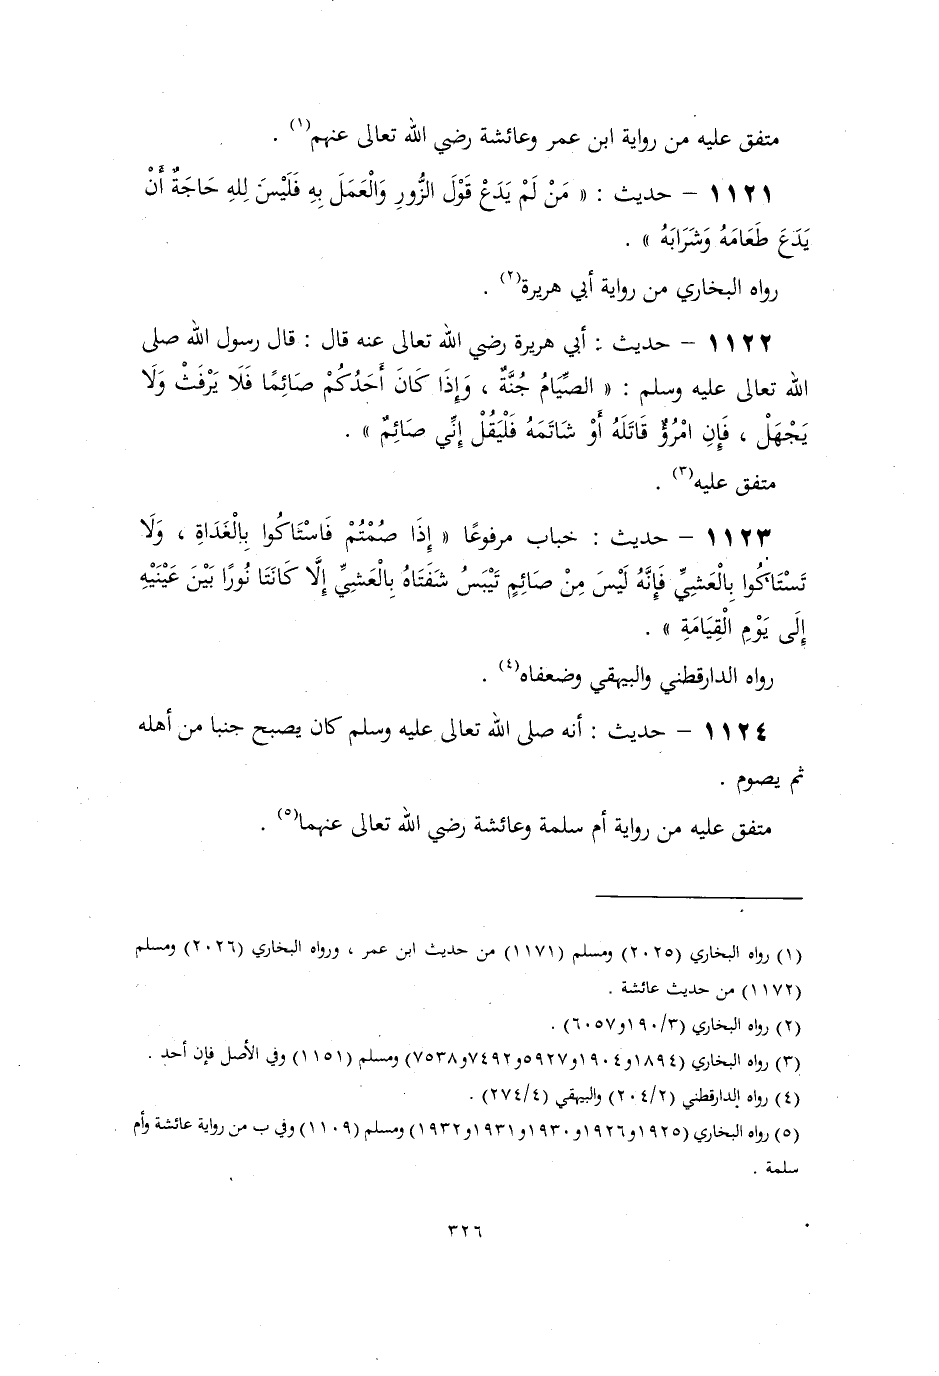 متفق عليه من رواية ابن عمر وعائشة رضي الله تعالى عنهم(١) .
١١٢١ – حديث : « مَنْ لَمْ يَدَعْ قَوْلَ الزُّورِ وَالْعَمَلَ بِهِ فَلَيْسَ لِلهِ حَاجَةٌ أَنْ
يَدَعَ طَعَامَهُ وَشَرَابَهُ » .
رواه البخاري من رواية أبي هريرة(٢) .
١١٢٢ – حديث : أبي هريرة رضي الله تعالى عنه قال : قال رسول الله صلى
الله تعالى عليه وسلم : « الصِّيَامُ جُنَّةٌ ، وَإِذَا كَانَ أَحَدُكُمْ صَائِمًا فَلَا يَرْفَثْ وَلَا
يَجْهَلْ ، فَإِنِ امْرُؤٌ قَاتَلَهُ أَوْ شَاتَمَهُ فَلْيَقُلْ إِنِّي صَائِمٌ » .
متفق عليه(٣) .
١١٢٣ – حديث : خباب مرفوعًا « إِذَا صُمْتُمْ فَاسْتَاكُوا بِالْغَدَاةِ ، وَلَا
تَسْتَاكُوا بِالْعَشِيِّ فَإِنَّهُ لَيْسَ مِنْ صَائِمٍ تَيْبَسُ شَفَتَاهُ بِالْعَشِيِّ إِلَّا كَانَتَا نُورًا بَيْنَ عَيْنَيْهِ
إِلَى يَوْمِ الْقِيَامَةِ » .
رواه الدارقطني والبيهقي وضعفاه(٤) .
١١٢٤ – حديث : أنه صلى الله تعالى عليه وسلم كان يصبح جنبا من أهله
ثم يصوم .
متفق عليه من رواية أم سلمة وعائشة رضي الله تعالى عنهما(٥) .
(١) رواه البخاري (٢٠٢٥) ومسلم (١١٧١) من حديث ابن عمر ، ورواه البخاري (٢٠٢٦) ومسلم
(١١٧٢) من حديث عائشة .
(٢) رواه البخاري (١٩٠/٣و٦٠٥٧) .
(٣) رواه البخاري (١٨٩٤و١٩٠٤و٥٩٢٧و٧٤٩٢و٧٥٣٨) ومسلم (١١٥١) وفي الأصل فإن أحد .
(٤) رواه الدارقطني (٢٠٤/٢) والبيهقي (٢٧٤/٤) .
(٥) رواه البخاري (١٩٢٥و١٩٢٦و١٩٣٠و١٩٣١و١٩٣٢) ومسلم (١١٠٩) وفي ب من رواية عائشة وأم
سلمة .
٣٢٦